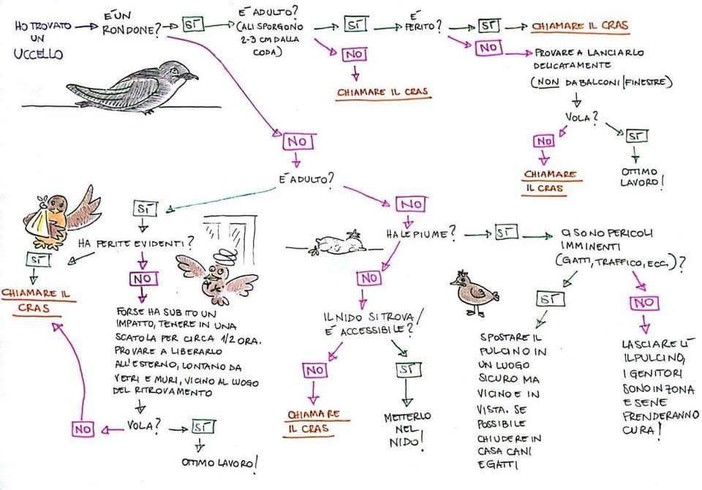 HO TROVATO
UN
UCCELLO
È UN
RONDONE?
SÌ
È ADULTO?
(ALI SPORGONO
2-3 CM DALLA
CODA)
SÌ
È
FERITO?
SÌ
CHIAMARE IL CRAS
NO
CHIAMARE IL CRAS
NO
PROVARE A LANCIARLO
DELICATAMENTE
(NON DA BALCONI/FINESTRE)
VOLA?
NO
CHIAMARE
IL CRAS
SÌ
OTTIMO
LAVORO!
NO
È ADULTO?
SÌ
HA FERITE EVIDENTI?
SÌ
CHIAMARE IL
CRAS
NO
FORSE HA SUBITO UN
IMPATTO, TENERE IN UNA
SCATOLA PER CIRCA 1/2 ORA.
PROVARE A LIBERARLO
ALL'ESTERNO, LONTANO DA
VETRI E MURI, VICINO AL LUOGO
DEL RITROVAMENTO
VOLA?
NO
SÌ
OTTIMO LAVORO!
NO
HA LE PIUME?
NO
IL NIDO SI TROVA/
È ACCESSIBILE?
NO
CHIAMARE
IL CRAS
SÌ
METTERLO
NEL
NIDO!
SÌ
CI SONO PERICOLI
IMMINENTI
(GATTI, TRAFFICO, ECC.)?
SÌ
SPOSTARE IL
PULCINO IN
UN LUOGO
SICURO MA
VICINO E IN
VISTA. SE
POSSIBILE
CHIUDERE IN
CASA CANI
E GATTI
NO
LASCIARE LÌ
IL PULCINO,
I GENITORI
SONO IN ZONA
E SE NE
PRENDERANNO
CURA!